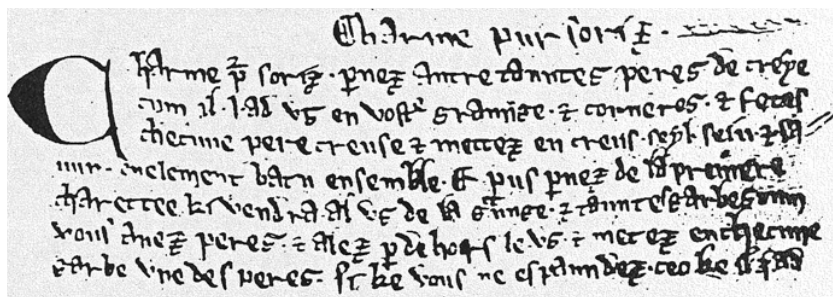 Charme pur soriz.
Charme pᵣ soriz. pernez autre tauntes peres de creye
cum il i ad us en vostᵉ graunge. ⁊ corneres. ⁊ fetes
checune pere creuse ⁊ mettez en creus. seyl. seiu ⁊ sa
uelement batu ensemble. E puis pernez de la premere
charettee ke vendra al us de la graunge. ⁊ tauntes garbes cum
vous auez peres. ⁊ alez par dehors le us. ⁊ metez en checune
garbe une des peres. si ke vous ne espaundez. ceo ke